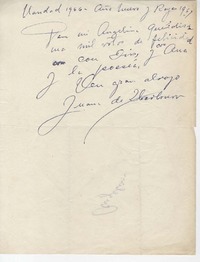 Navidad 1956 - Año Nuevo y Reyes 1957
Para mi Angelina queridísima
mil votos de felicidad
con Dios y Ana
y la poesía.
Un gran abrazo
Juana de Ibarbourou